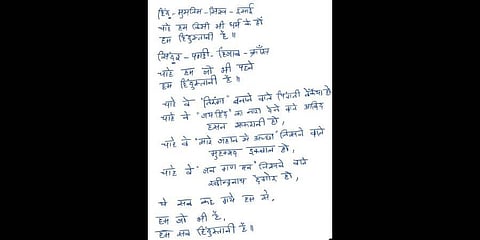 हिंदू - मुसलिम - सिख - इसाई
चाहे हम किसी भी धर्म के हों
हम हिंदुस्तानी हैं ॥
सिंदूर - पगड़ी - हिजाब - क्रॉस
चाहे हम जो भी पहने
हम हिंदुस्तानी हैं ॥
चाहे वे "तिरंगा" बनाने वाले पिंगली वेंकैया हो
चाहे वे "जयहिंद" का नारा देने वाले आबिद
हसन सफरानी हो,
चाहे वे "सारे जहान से अच्छा" लिखने वाले
मुहम्मद इक़बाल हो,
चाहे वे "जन गण मन" लिखने वाले
रवीन्द्रनाथ टैगोर हो,
ये सब कह गये हम से,
हम जो भी हैं,
हम सब हिंदुस्तानी हैं ॥